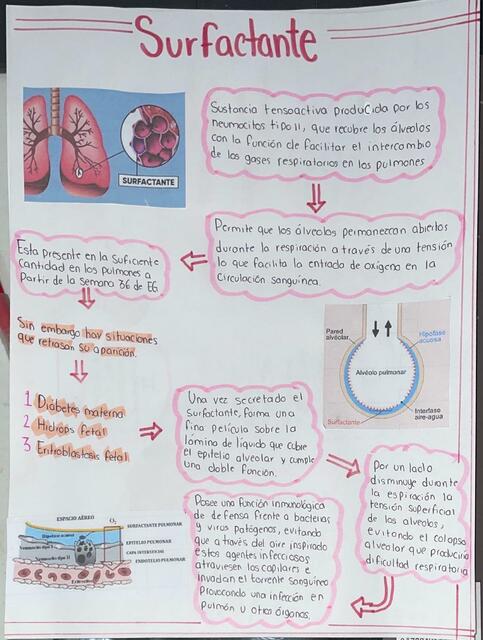 Surfactante
Sustancia tensoactiva producida por los
neumocitos tipo II, que recubre los álveolos
con la función de facilitar el intercambio
de los gases respiratorios en los pulmones
SURFACTANTE
Permite que los álveolos permanezcan abiertos
durante la respiración a través de una tensión
lo que facilita la entrada de oxígeno en la
Circulación sanguínea.
Esta presente en la suficiente
cantidad en los pulmones a
Partir de la semana 36 de EG
Sin embargo hay situaciones
que retrasan su aparición.
1 Diabetes materna
2 Hidrops fetal
3 Eritroblastosis fetal
Pared
alveolar
Hipofase
acuosa
Alvéolo pulmonar
Surfactante
Interfase
aire-agua
Una vez secretado el
Surfactante, forma una
fina película sobre la
lámina de líquido que cubre
el epitelio alveolar y cumple
una doble función.
Por un lado
disminuye durante
la espiración la
tensión superficial
de los alveolos,
evitando el colapso
alveolar que produciría
dificultad respiratoria
Posee una función inmunológica
de defensa frente a bacterias
y virus patógenos, evitando
que a través del aire inspirado
estos agentes infecciosos
atraviesen los capilares e
Invadan el torrente sanguíneo
Provocando una infección en
Pulmón u otros órganos.
ESPACIO AÉREO
O2
SURFACTANTE PULMONAR
Hipofase acuosa
EPITELIO PULMONAR
Neumocito tipo I
CAPA INTERSTICIAL
Neumocito tipo II
ENDOTELIO PULMONAR